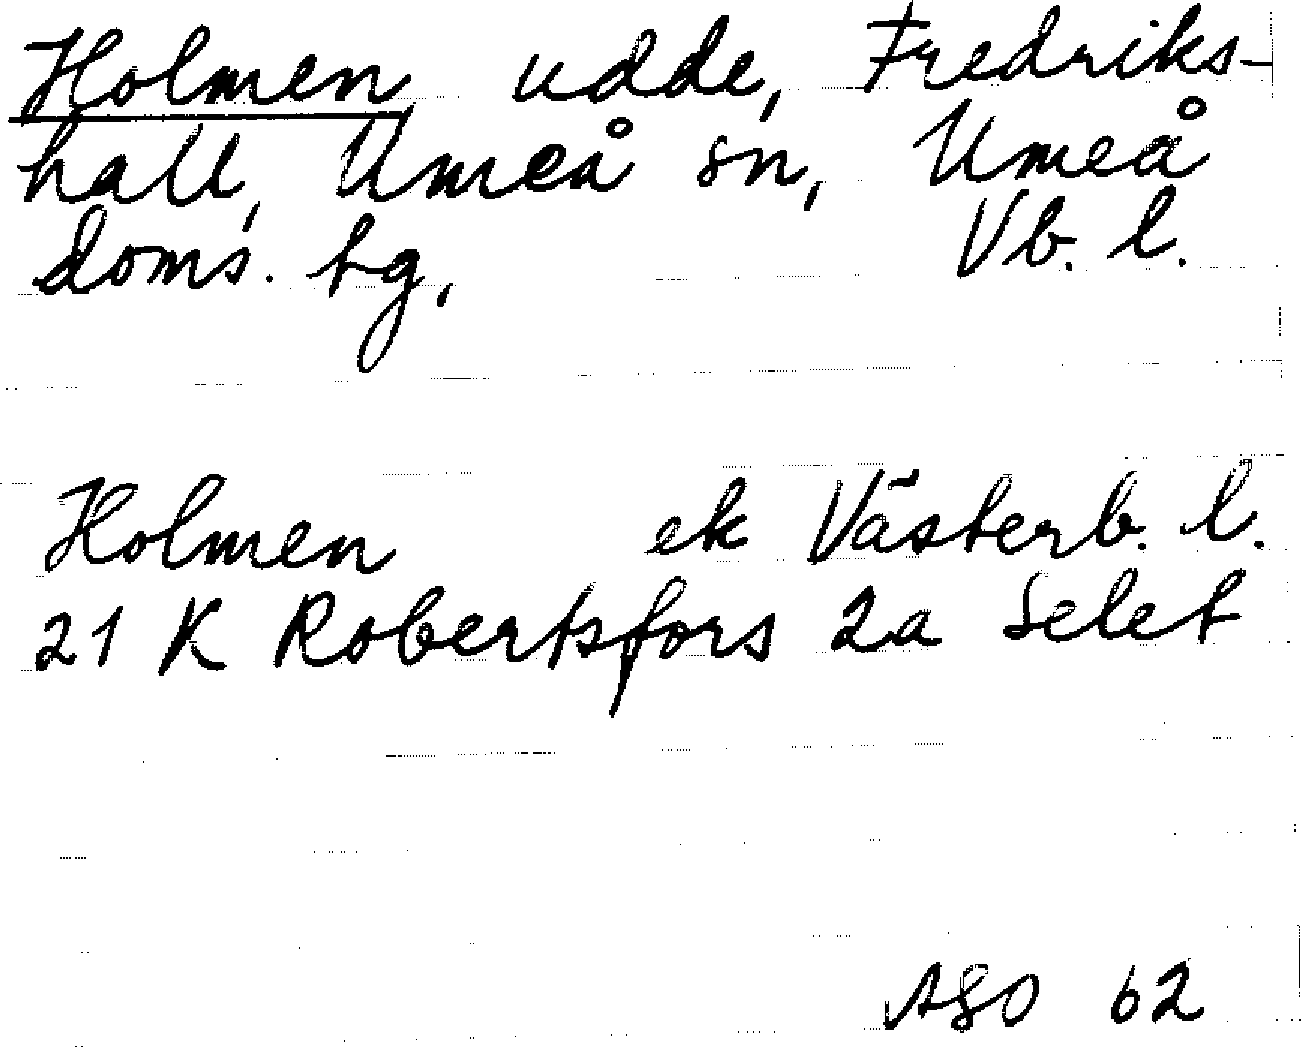 Holmen, udde, Fredriks-
hall, Umeå sn, Umeå
doms. tg, Vb. l.
Holmen ek Västerb. l.
21 K Robertsfors 2a Selet
ASO 62